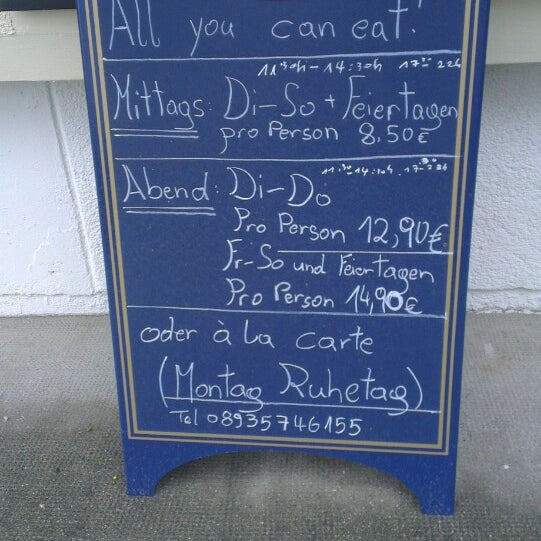 All you can eat!
11³⁰h-14:30h 17³⁰ 22h
Mittags: Di-So + Feiertagen
pro Person 8,50€
11:30-14:30h
Abend: Di-Do
Pro Person 12,90€
Fr-So und Feiertagen
Pro Person 14,90€
oder à la carte
(Montag Ruhetag)
Tel 08935746155